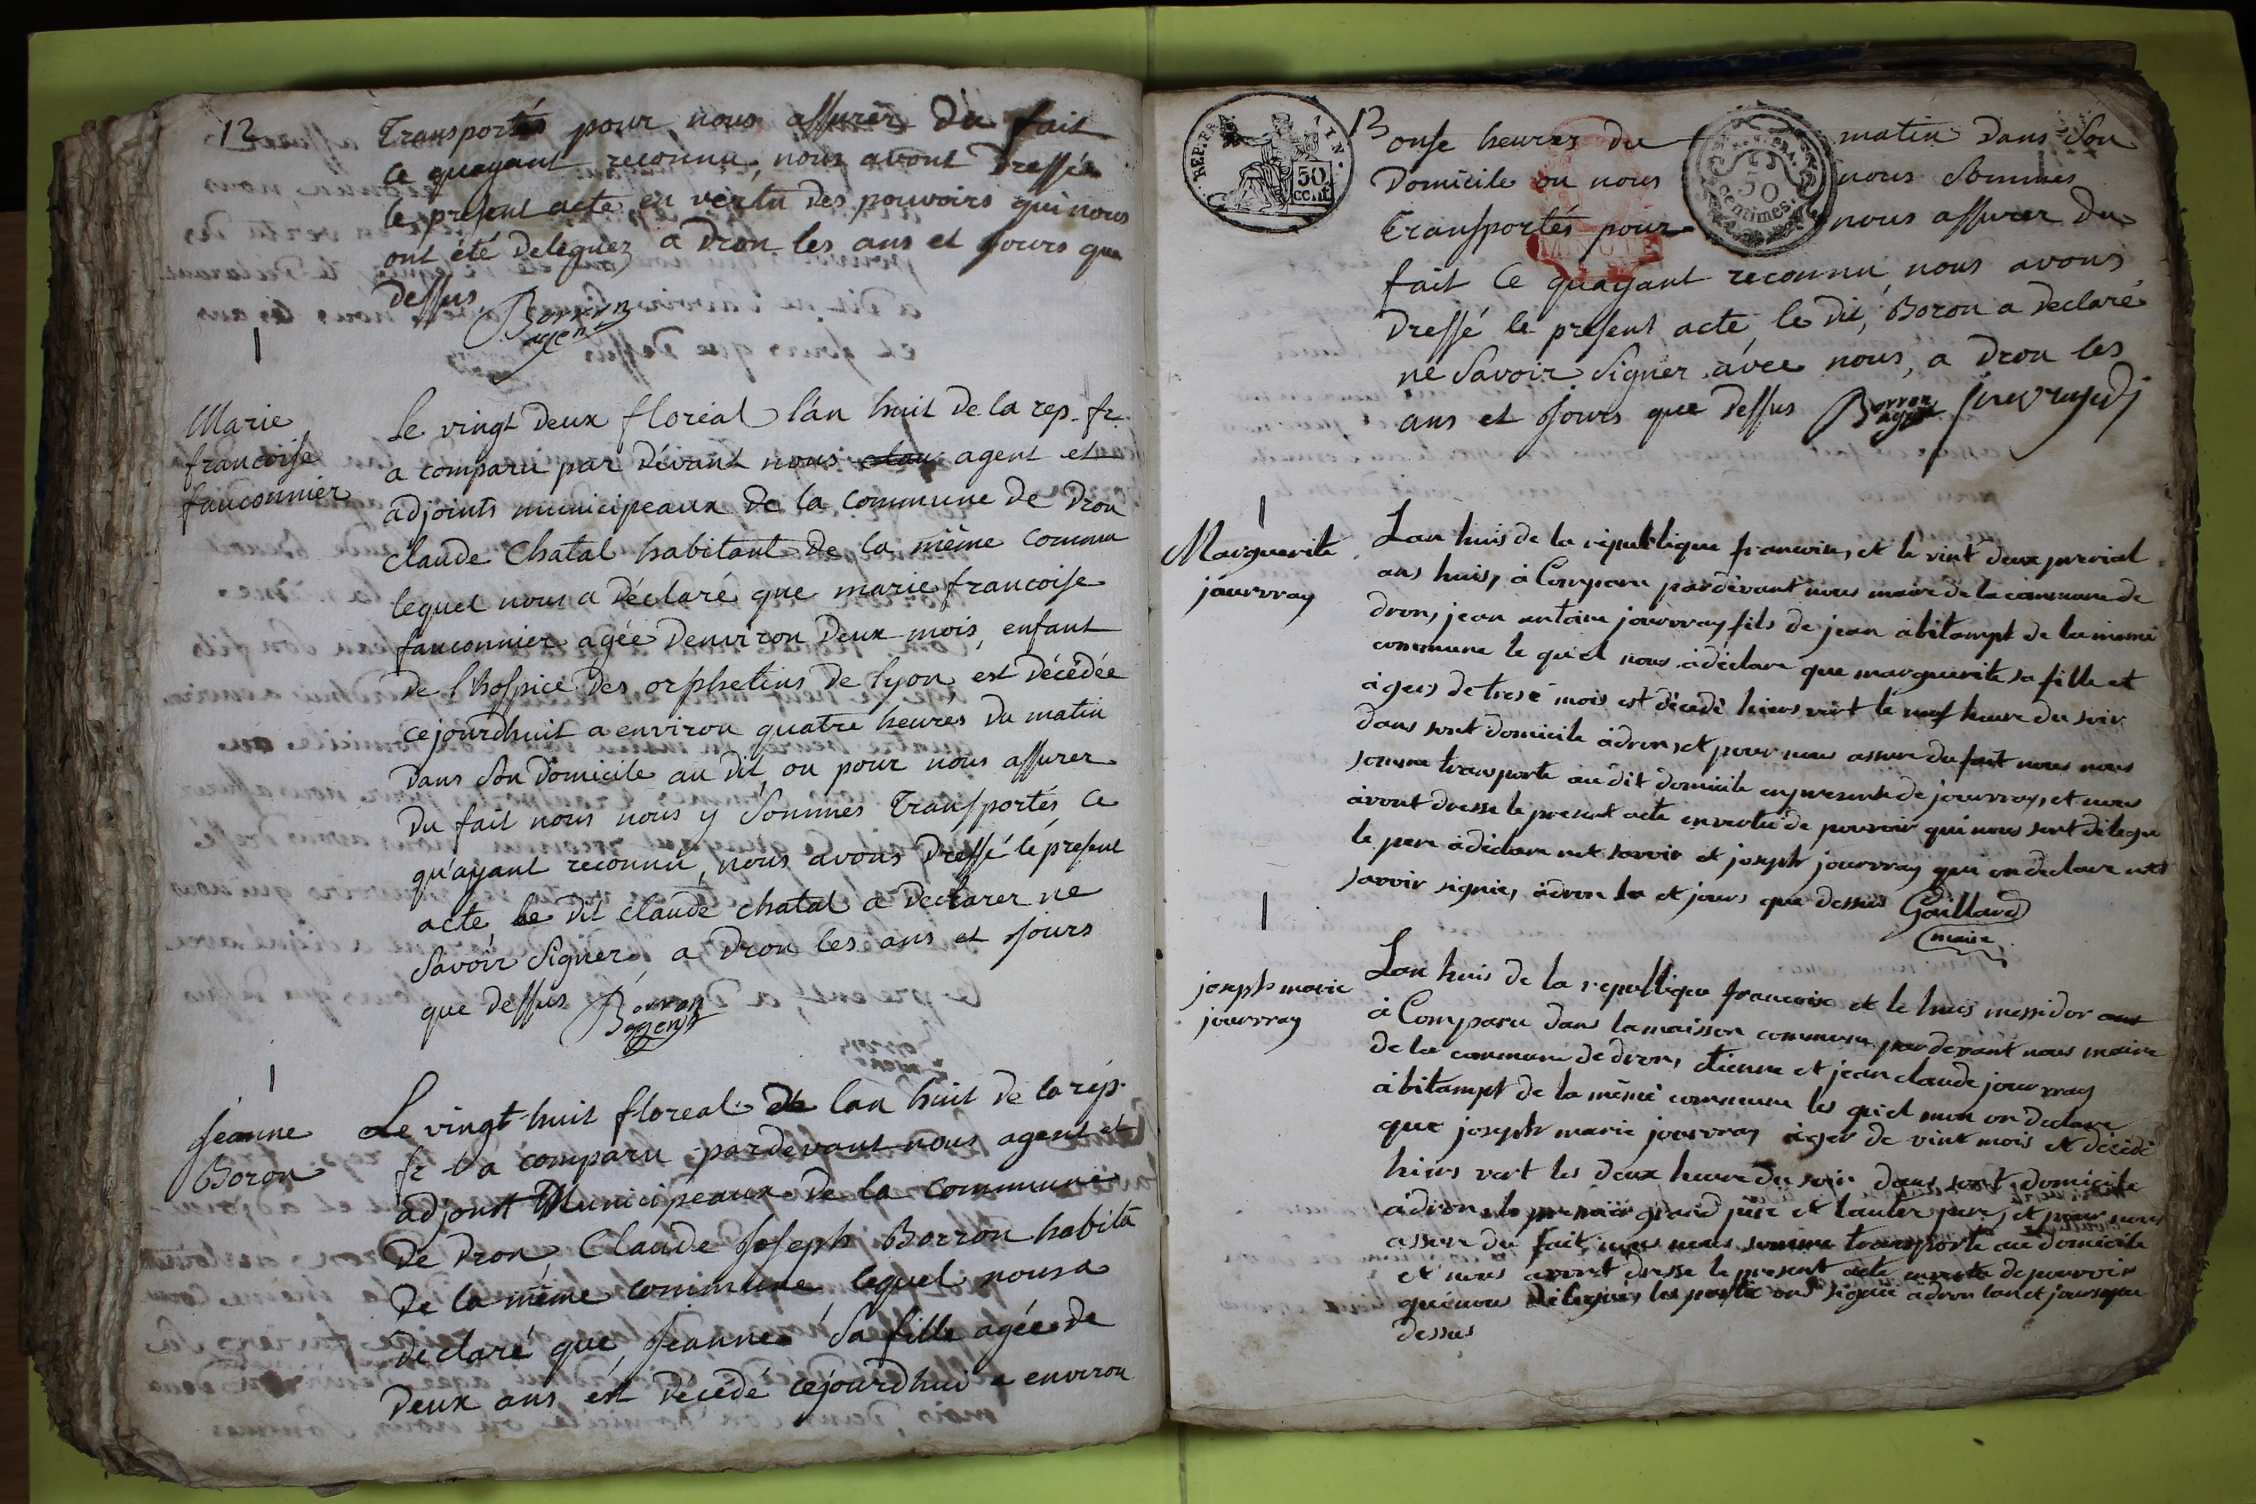 12
Transportés pour nous assurer du fait
ce quayant reconnu, nous avont dressée
le present acte en vertu des pouvoirs qui nous
ont été deleguez a dron les ans et jours que
dessus Borron
agent
Marie
francoise
fauconnier
Le vingt deux floréal l'an huit de la rep. fr.
a comparu par dévant nous agent et
adjoints municipeaux de la commune de dron
claude Chatal habitant de la même commu
lequel nous a déclaré que marie francoise
fauconnier agée denviron deux mois, enfant
de l'hospice des orphelins de lyon est décédée
cejourdhuit a environ quatre heures du matin
dans son domicile au dit, ou pour nous assurer
du fait nous nous y sommes transportés, ce
qu'ayant reconnu, nous avons dressé le present
acte, le dit claude chatal a declarer ne
savoir signer, a dron les ans et jours
que dessus Borron
agent
jeanne
Boron
Le vingt-huit floreal de lan huit de la rép.
fr a comparu pardevant nous agent et
adjoint Municipeaux de la commune
de dron, Claude Joseph Borron habita
de la même commune, lequel nous a
declaré que Jeanne sa fille agée de
deux ans ést décédé cejourdhui a environ
REP. FRA.
50
cent
13
onse heures du matin dans son
50
centimes.
domicile ou nous nous sommes
transportés pour nous assurer du
fait ce quayant reconnu, nous avons
dressé le present acte le dit, Boron a declaré
ne savoir signer avec nous, a dron les
ans et jours que dessus Borron
agent
Marguerite
jourvray
Lan huis de la république francoise, et le vint deux prerial
ans huis, à Comparu pardevant nous maire de la commune de
dron, jean antoine jourvray fils de jean àbitampt de la mêmé
commune le quel nous àdéclare que marguerite sa fille et
àgeis de tresé mois est décedé hiers vert le neuf heure du soir
dans sont domicile àdron, et pour nous assure du fait nous nous
somme transporte au dit domicile enpresente de jourvray, et nous
àvont dresse le present acte en vertu de pouvoir qui nous sont delegue
le pere àdéclare net savoir et joseph jourvray qui on declare net
savoir signie, àdron la et jours que dessus Gaillard
maire
joseph marie
jourvray
Lan huis de la republique francoise et le huis messidor
à Comparu dans la maisson commune pardevant nous maire
de la commune de dron, etienne et jean claude jourvray
àbitampt de la mêmé commune les quel nous on declare
que joseph marie jourvray àger de vint mois et décédé
hiers vert les deux heure du soir dans sont domicile
àdron, le premier grand pere et lauter pere, et pour nous
assure du fait, nous nous somme transporte au domicile
et nous avont dresse le present acte de pouvoir
quinous delegués les partie ont signie àdron lan et jours que
dessus